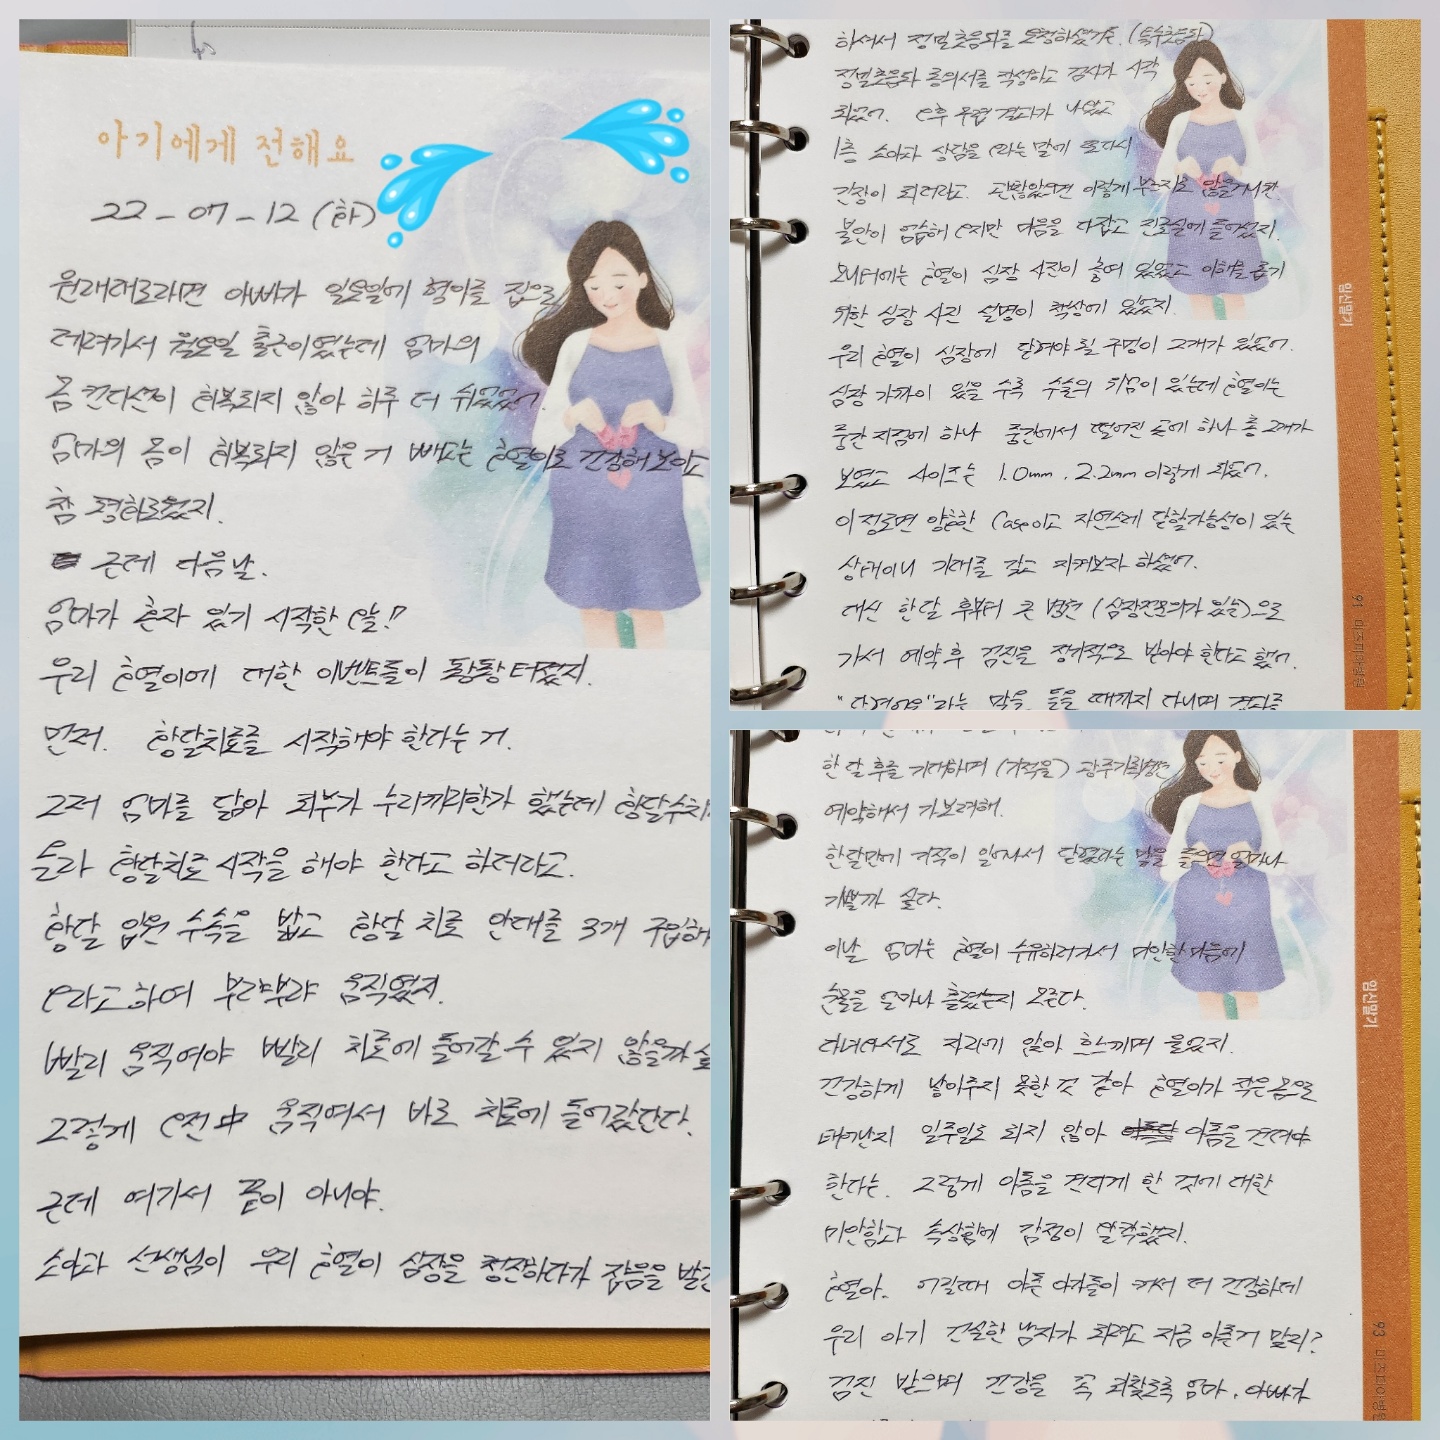 아기에게 전해요
22-07-12 (화)
원래대로라면 아빠가 일요일에 형아를 집으로
데려가서 월요일 출근이었는데 엄마의
몸 컨디션이 회복되지 않아 하루 더 쉬었었어.
엄마의 몸이 회복되지 않은 거 빼고는 효열이로 건강해보이고
참 평화로웠지.
근데 다음날.
엄마가 혼자 있기 시작한 날!!
우리 효열이에 대한 이벤트들이 팡팡 터졌지.
먼저. 황달치료를 시작해야 한다는 거.
그저 엄마를 닮아 피부가 누리끼리한가 했는데 황달수치
올라 황달치료 시작을 해야 한다고 하더라고.
황달 입원 수속을 밟고 황달 치료 안대를 3개 구입해
오라고하여 부랴부랴 움직였지.
빨리 움직여야 빨리 치료에 들어갈 수 있지 않을까 싶
그렇게 오전中 움직여서 바로 치료에 들어갔단다.
근데 여기서 끝이 아니야.
소아과 선생님이 우리 효열이 심장을 청진하다가 잡음을 발견
하셔서 정밀초음파를 요청하셨거든. (특수초음파)
정밀초음파 동의서를 작성하고 검사가 시작
되었어. 오후 무렵 결과가 나왔고
1층 소아과 상담을 오라는 말에 또다시
긴장이 되더라고. 괜찮았으면 이렇게 부르지도 않을거니깐.
불안이 엄습해 오지만 마음을 다잡고 진료실에 들어섰지.
모니터에는 효열이 심장 사진이 띄여 있었고 이해를 돕기
위한 심장 사진 설명이 책상에 있었지.
우리 효열이 심장에 닫혀야 될 구멍이 2개가 있었어.
심장 가까이 있을 수록 수술의 위험이 있는데 효열이는
중간 지점에 하나 중간에서 떨어진 곳에 하나 총 2개가
보였고 사이즈는 1.0mm, 2.2mm 이렇게 되었어.
이 정도면 양호한 Case이고 자연스레 닫힐가능성이 있는
상태이니 기대를 갖고 지켜보자 하셨어.
대신 한달 후부터 큰 병원 (심장전문의가 있는)으로
가서 예약 후 검진을 정기적으로 받아야 한다고 했어.
라는 말을 들을 때까지 다니며 결과를
한 달 후를 기대하며 (기적을) 광주기독병원
예약해서 가보려해.
한달만에 기적이 일어나서 닫혔다는 말을 들으면 얼마나
기쁠까 싶다.
이날 엄마는 효열이 수유하러가서 미안한 마음에
눈물을 얼마나 흘렸는지 모른다.
다녀와서도 자리에 앉아 흐느끼며 울었지.
건강하게 낳아주지 못한 것 같아 효열이가 작은 몸으로
태어난지 일주일도 되지 않아 아픔을 견뎌야
한다는. 그렇게 아픔을 견디게 한 것에 대한
미안함과 속상함에 감정이 울컥했지.
효열아. 어릴때 아픈 아가들이 커서 더 건강하데
우리 아기 건실한 남자가 되려고 지금 아픈거 맞지?
검진 받으며 건강을 꼭 되찾도록 엄마, 아빠가
임신말기
91
임신말기
93